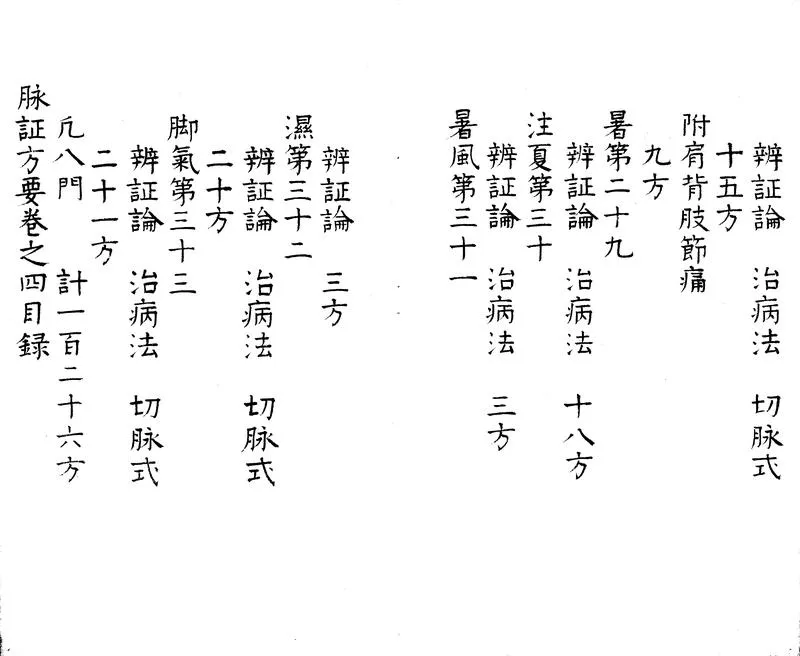 辨証論 治病法 切脉式
十五方
附肩背肢節痛
九方
暑第二十九
辨証論 治病法 十八方
注夏第三十
辨証論 治病法 三方
暑風第三十一
辨証論 三方
濕第三十二
辨証論 治病法 切脉式
二十方
脚氣第三十三
辨証論 治病法 切脉式
二十一方
凡八門 計一百二十六方
脉証方要卷之四目録